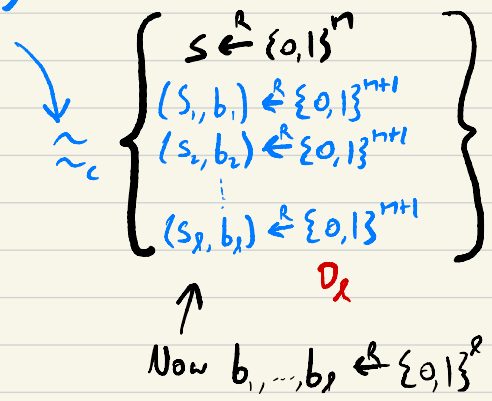 S ←ᴿ {0,1}ⁿ
(S₁, b₁) ←ᴿ {0,1}ⁿ⁺¹
≈c
(S₂, b₂) ←ᴿ {0,1}ⁿ⁺¹
⋮
(Sℓ, bℓ) ←ᴿ {0,1}ⁿ⁺¹
Dℓ
Now b₁,...,bℓ ←ᴿ {0,1}^ℓ